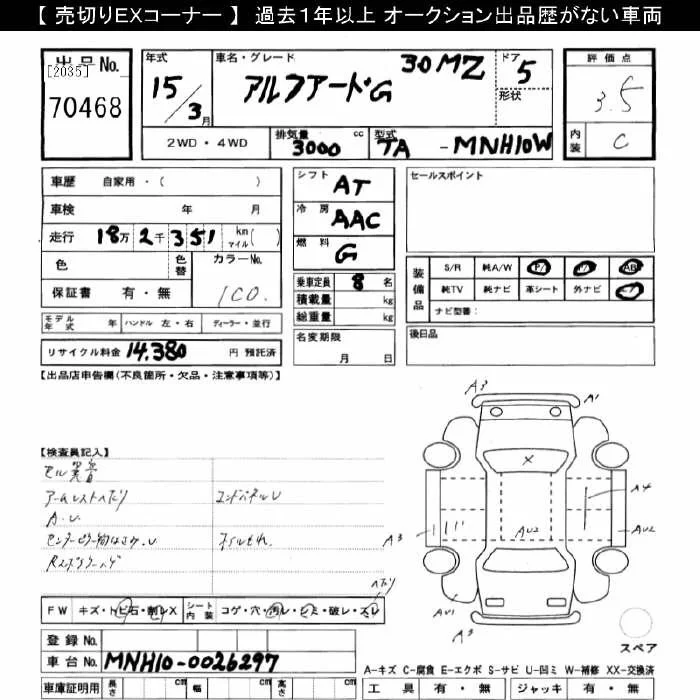 【 売切りEXコーナー 】 過去1年以上 オークション出品歴がない車両
出品No.
[2035]
70468
年式
15/3月
車名・グレード
アルファードG 30MZ
ドア
5
形状
評価点
3.5
内装
C
2WD・4WD
排気量 3000 cc
型式 TA - MNH10W
車歴 自家用・( )
車検 年 月
走行 18万2千351 km マイル( )
色
色替
カラーNo.
1C0.
保証書 有・無
シフト AT
冷房 AAC
燃料 G
乗車定員 8 名
積載量 kg
総重量 kg
セールスポイント
装備品
S/R 純A/W P/ P/ AB
純TV 純ナビ 革シート 外ナビ
ナビ型番:
モデル年式 年 ハンドル 左・右 ディーラー・並行
名変期限
月 日
後日品
リサイクル料金 14,380 円 預託済
【出品店申告欄(不良箇所・欠品・注意事項等)】
【検査員記入】
セル異音
アームレストヘタリ
コンドパネルU
A.U
オイルもれ.
A3
A1
X
A4
A3
AU2
AU2
AU1
A3
ヘタリ
FW キズ・トビ石・割レX シート内装 コゲ・穴・汚レ・シミ・破レ・スレ
スペア
登録No.
車台No. MNH10-0026297
A-キズ C-腐食 E-エクボ S-サビ U-凹ミ W-補修 XX-交換済
車庫証明用 長さ cm 幅 cm 高さ cm
工具 有・無 ジャッキ 有・無